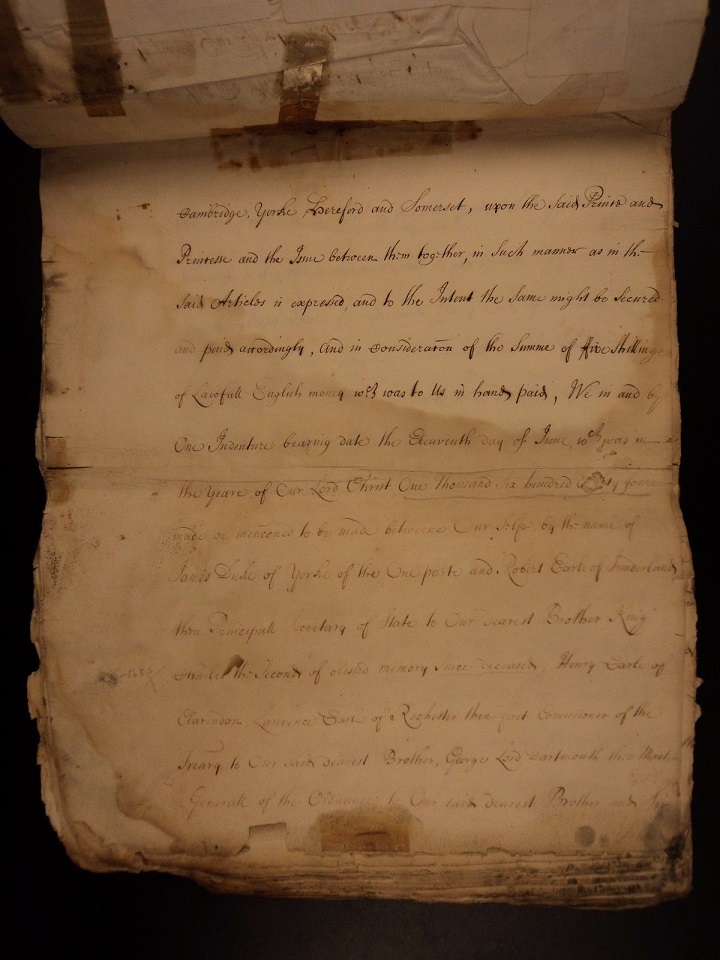 Cambridge, Yorke Hereford and Somerset, upon the said Prince and
Princesse and the Issue between them together, in such manner as in the
said Articles is expressed, and to the Intent the same might be secured
and paid accordingly, And in consideracon of the Summe of ffive shillings
of Lawfull English money wch was to Us in hand paid, We in and by
One Indenture bearing date the Eleaventh day of June, wch was in
the Yeare of Our Lord Christ One Thousand Six hundred foure
made or menconed to be made betweene Our Selfe, by the name of
James Duke of Yorke of the One parte and Robert Earle of Sunderland
then Principall Secretary of State to Our dearest Brother King
Charles the Second of blessed memory since deceased, Henry Earle of
Clarendon Laurence Earle of Rochester then first Commissioner of the
Treary to Our said dearest Brother, George Lord Dartmouth then Master
Generall of the Ordnance to Our said dearest Brother and